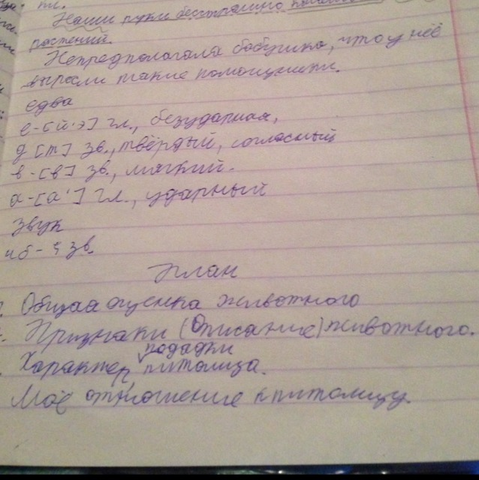 ти.
Наши руки бессознательно
растений.
Непредполагала бабушка, что у неё
выросли такие помощники.
едва
е-[й'э] гл., безударная,
д [т] зв., твёрдый, согласный
в-[в] зв., мягкий.
а-[а'] гл., ударный
звук
4 б - 5 зв
План
Общая оценка животного
Признаки (Описание) животного.
повадки
Характер питомца.
Моё отношение к питомцу.